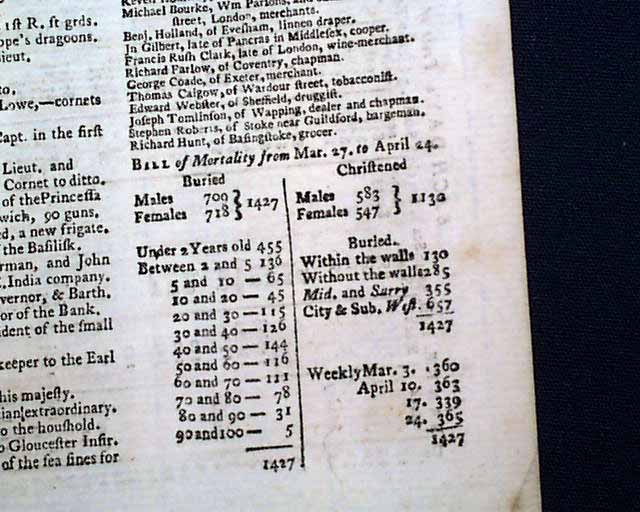 1st R. ft grds.
ope's dragoons.
ieut.
to.
Lowe,—cornets
Capt. in the first
Lieut. and
Cornet to ditto.
of the Princeſſa
wich, 90 guns.
d, a new frigate.
the Baſiliſk.
rman, and John
E. India company.
vernor, & Barth.
or of the Bank.
dent of the ſmall
keeper to the Earl
his majeſty.
ian extraordinary.
o the houſhold.
o Glouceſter Infir.
of the ſea fines for
Michael Bourke, Wm Parſons, and
ſtreet, London, merchants.
Benj. Holland, of Eveſham, linnen draper.
Jn Gilbert, late of Pancras in Middleſex, cooper.
Francis Ruſh Clark, late of London, wine-merchant.
Richard Farlow, of Coventry, chapman.
George Coade, of Exeter, merchant.
Thomas Calgow, of Wardour ſtreet, tobacconiſt.
Edward Webſter, of Sheffield, druggiſt.
Joſeph Tomlinſon, of Wapping, dealer and chapman.
Stephen Roberts, of Stoke near Guildford, bargeman.
Richard Hunt, of Baſingſtoke, grocer.
BILL of Mortality from Mar. 27. to April 24.
Buried
Males 709 } 1427
Females 718
Under 2 Years old 455
Between 2 and 5 136
5 and 10 — 65
10 and 20 — 45
20 and 30 — 115
30 and 40 — 126
40 and 50 — 144
50 and 60 — 116
60 and 70 — 111
70 and 80 — 78
80 and 90 — 31
90 and 100 — 5
1427
Chriſtened
Males 583 } 1130
Females 547
Buried.
Within the walls 130
Without the walls 285
Mid. and Surry 355
City & Sub. Weſt. 657
1427
Weekly Mar. 3. . 360
April 10. 363
17. 339
24. 365
1427